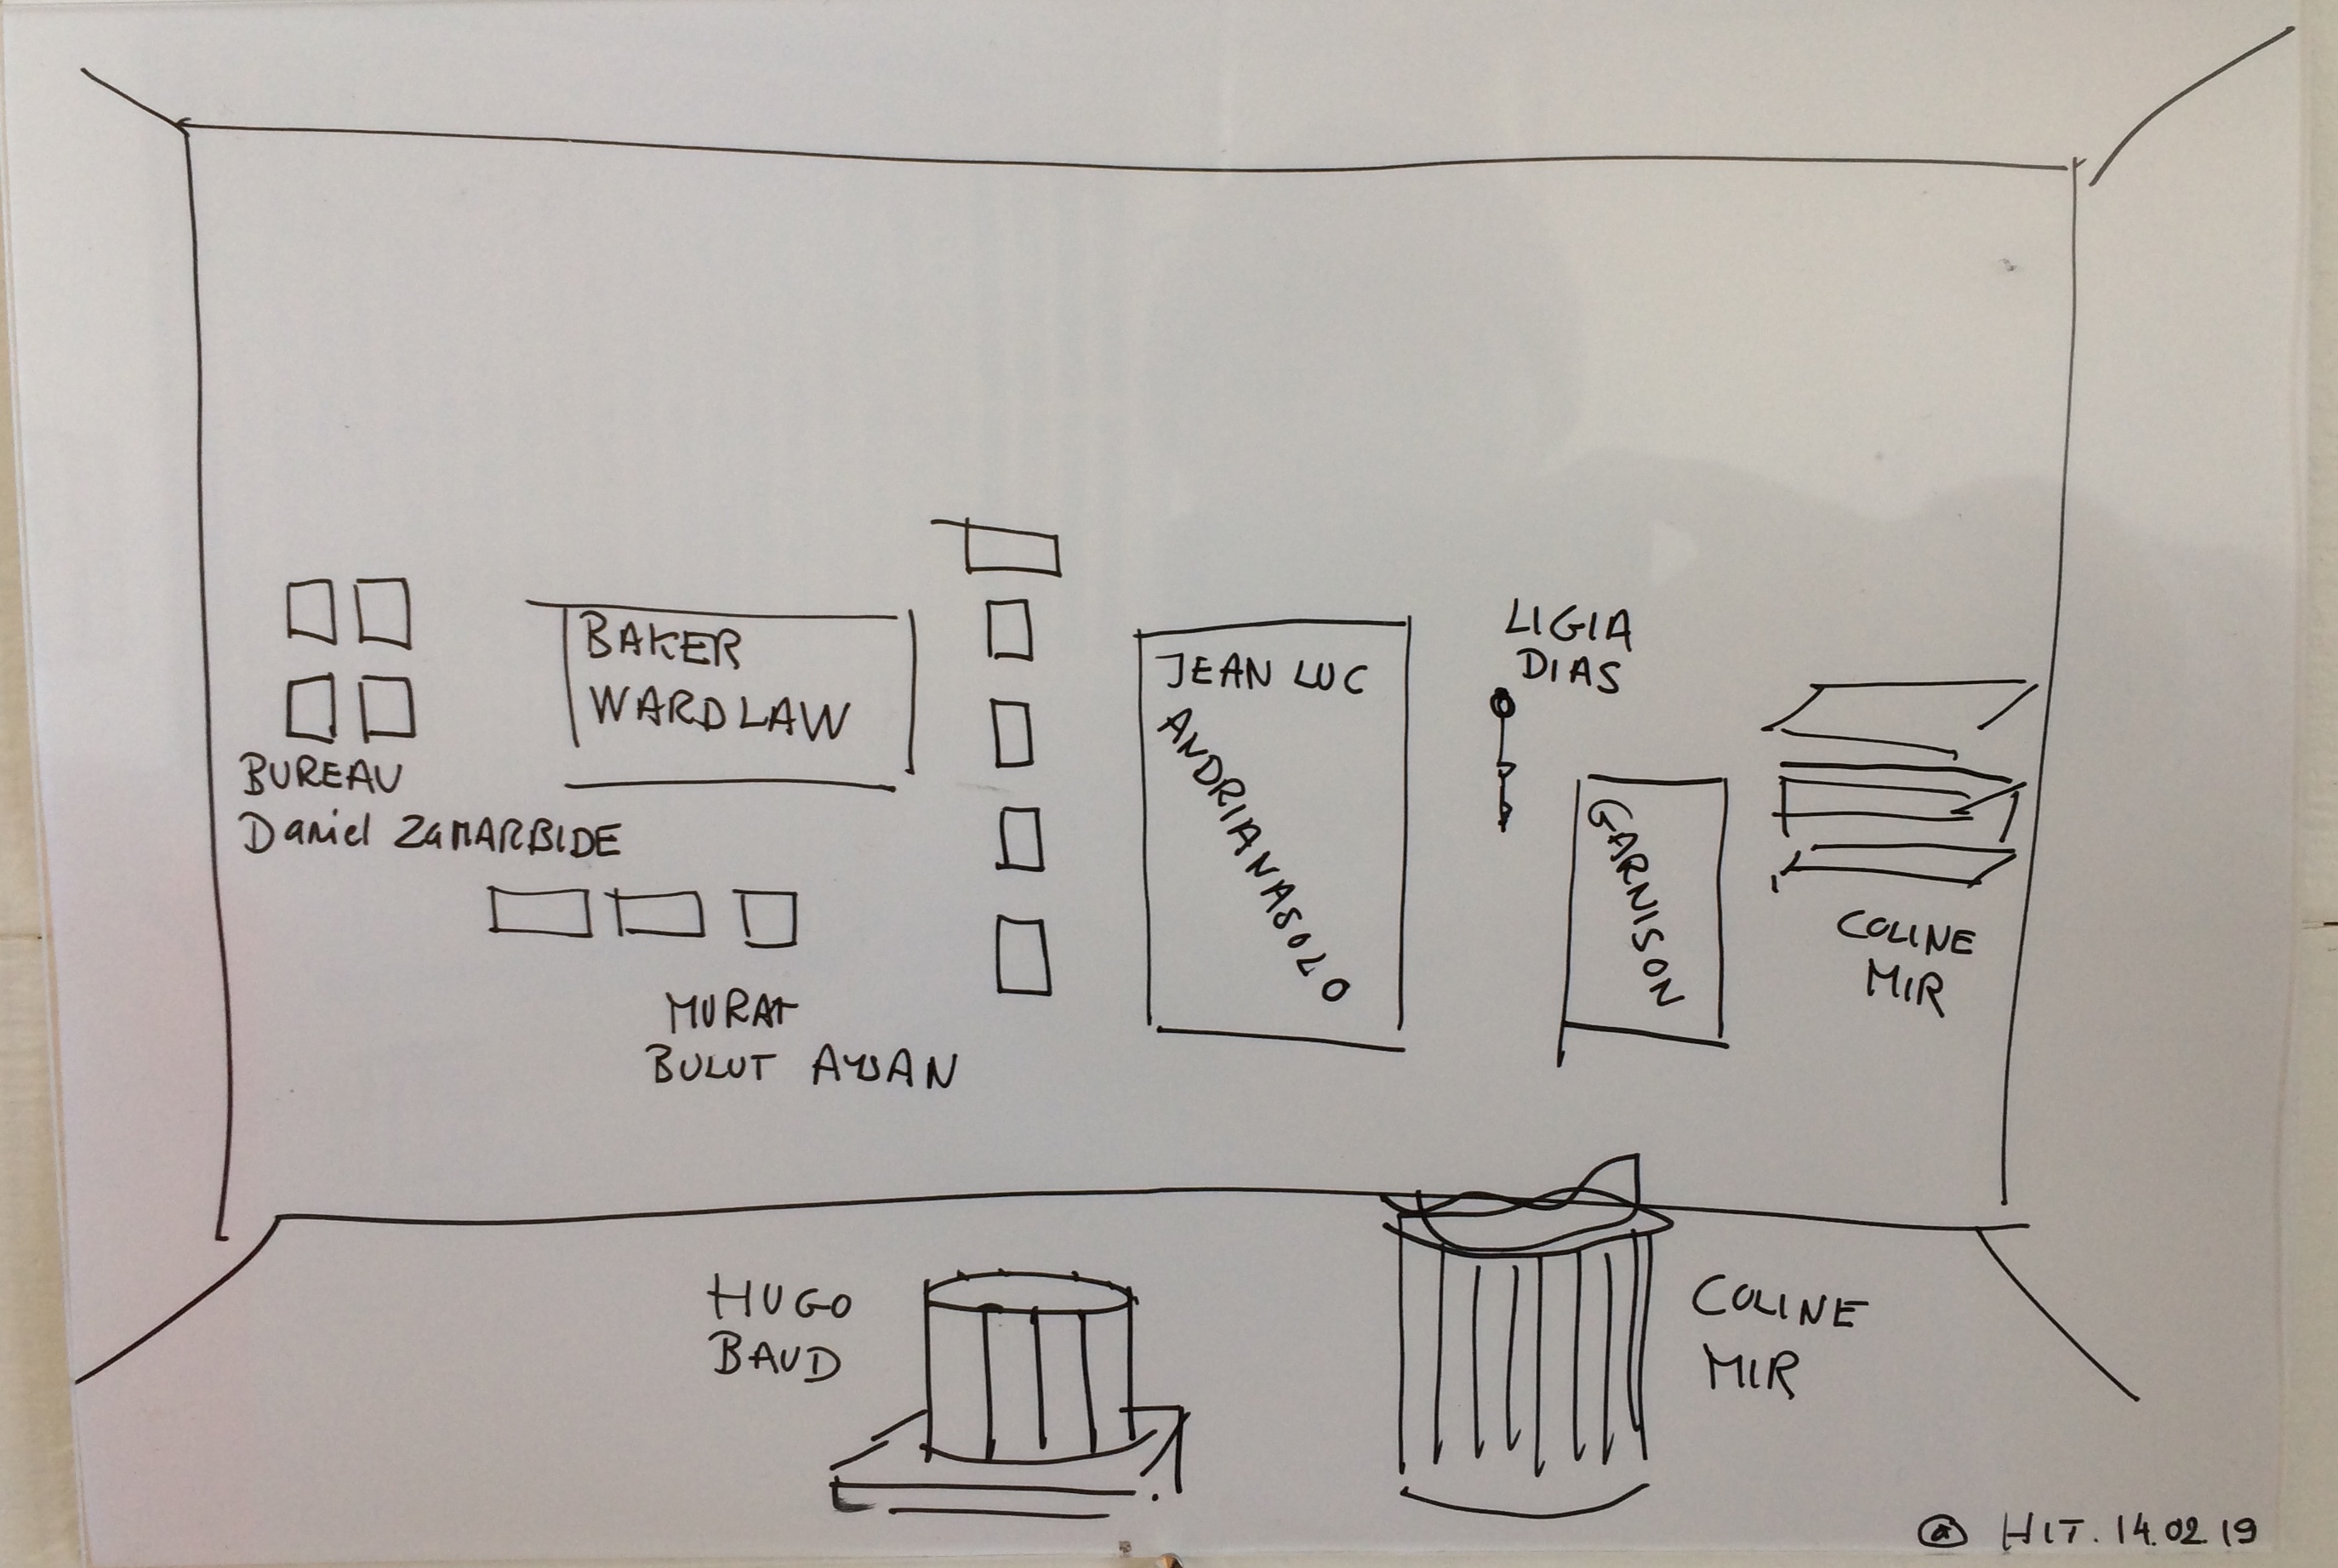 BAKER
WARDLAW
BUREAU
Daniel ZaMARBIDE
MURAT
BULUT AYSAN
JEAN LUC
ANDRIANASOLO
LIGIA
DIAS
GARNISON
COLINE
MIR
HUGO
BAUD
COLINE
MIR
@ HIT. 14.02.19